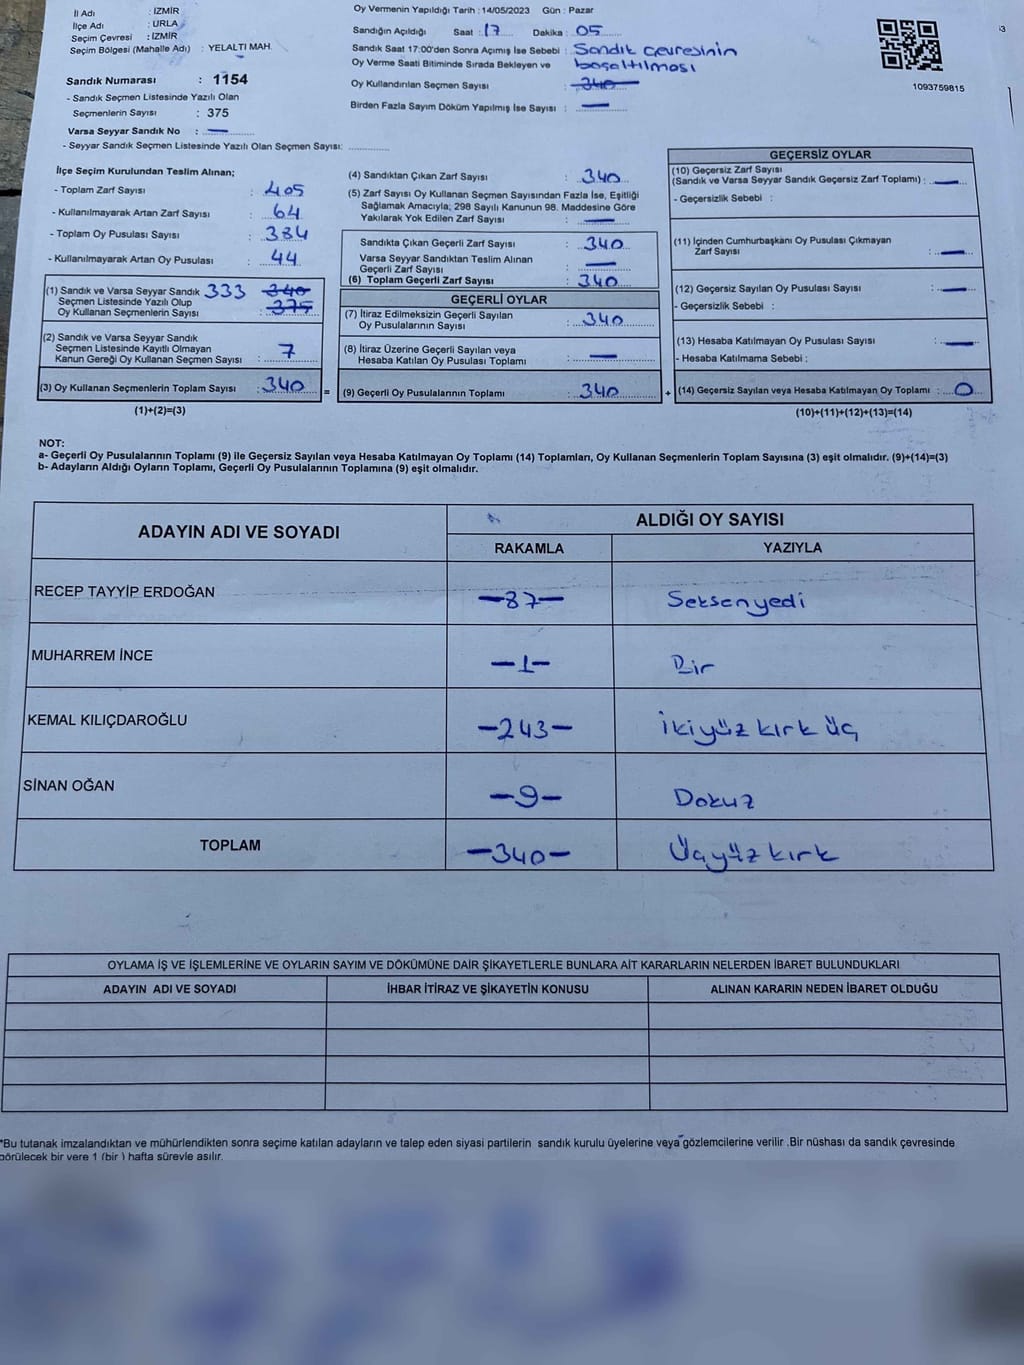 İl Adı : İZMİR
İlçe Adı : URLA
Seçim Çevresi : İZMİR
Seçim Bölgesi (Mahalle Adı) : YELALTI MAH.
Sandık Numarası : 1154
- Sandık Seçmen Listesinde Yazılı Olan
Seçmenlerin Sayısı : 375
Varsa Seyyar Sandık No : —
- Seyyar Sandık Seçmen Listesinde Yazılı Olan Seçmen Sayısı: ............
Oy Vermenin Yapıldığı Tarih : 14/05/2023 Gün : Pazar
Sandığın Açıldığı Saat : 17 Dakika : 05
Sandık Saat 17:00'den Sonra Açımış İse Sebebi : Sandık çevresinin
Oy Verme Saati Bitiminde Sırada Bekleyen ve boşaltılması
Oy Kullandırılan Seçmen Sayısı : 340
Birden Fazla Sayım Döküm Yapılmış İse Sayısı : —
1093759815
İlçe Seçim Kurulundan Teslim Alınan;
- Toplam Zarf Sayısı : 405
- Kullanılmayarak Artan Zarf Sayısı : 64
- Toplam Oy Pusulası Sayısı : 384
- Kullanılmayarak Artan Oy Pusulası : 44
(1) Sandık ve Varsa Seyyar Sandık 333 340
Seçmen Listesinde Yazılı Olup : 375
Oy Kullanan Seçmenlerin Sayısı
(2) Sandık ve Varsa Seyyar Sandık
Seçmen Listesinde Kayıtlı Olmayan
Kanun Gereği Oy Kullanan Seçmen Sayısı : 7
(3) Oy Kullanan Seçmenlerin Toplam Sayısı : 340
(1)+(2)=(3)
(4) Sandıktan Çıkan Zarf Sayısı : 340
(5) Zarf Sayısı Oy Kullanan Seçmen Sayısından Fazla İse, Eşitliği
Sağlamak Amacıyla; 298 Sayılı Kanunun 98. Maddesine Göre
Yakılarak Yok Edilen Zarf Sayısı : —
Sandıkta Çıkan Geçerli Zarf Sayısı : 340
Varsa Seyyar Sandıktan Teslim Alınan
Geçerli Zarf Sayısı : —
(6) Toplam Geçerli Zarf Sayısı : 340
GEÇERLİ OYLAR
(7) İtiraz Edilmeksizin Geçerli Sayılan
Oy Pusulalarının Sayısı : 340
(8) İtiraz Üzerine Geçerli Sayılan veya
Hesaba Katılan Oy Pusulası Toplamı : —
= (9) Geçerli Oy Pusulalarının Toplamı : 340
GEÇERSİZ OYLAR
(10) Geçersiz Zarf Sayısı
(Sandık ve Varsa Seyyar Sandık Geçersiz Zarf Toplamı) : —
- Geçersizlik Sebebi :
(11) İçinden Cumhurbaşkanı Oy Pusulası Çıkmayan
Zarf Sayısı : —
(12) Geçersiz Sayılan Oy Pusulası Sayısı : —
- Geçersizlik Sebebi :
(13) Hesaba Katılmayan Oy Pusulası Sayısı : —
- Hesaba Katılmama Sebebi :
+ (14) Geçersiz Sayılan veya Hesaba Katılmayan Oy Toplamı : 0
(10)+(11)+(12)+(13)=(14)
NOT:
a- Geçerli Oy Pusulalarının Toplamı (9) ile Geçersiz Sayılan veya Hesaba Katılmayan Oy Toplamı (14) Toplamları, Oy Kullanan Seçmenlerin Toplam Sayısına (3) eşit olmalıdır. (9)+(14)=(3)
b- Adayların Aldığı Oyların Toplamı, Geçerli Oy Pusulalarının Toplamına (9) eşit olmalıdır.
ADAYIN ADI VE SOYADI
ALDIĞI OY SAYISI
RAKAMLA YAZIYLA
RECEP TAYYİP ERDOĞAN -87- Seksenyedi
MUHARREM İNCE -1- Bir
KEMAL KILIÇDAROĞLU -243- İkiyüz kırk üç
SİNAN OĞAN -9- Dokuz
TOPLAM -340- Üçyüz kırk
OYLAMA İŞ VE İŞLEMLERİNE VE OYLARIN SAYIM VE DÖKÜMÜNE DAİR ŞİKAYETLERLE BUNLARA AİT KARARLARIN NELERDEN İBARET BULUNDUKLARI
ADAYIN ADI VE SOYADI İHBAR İTİRAZ VE ŞİKAYETİN KONUSU ALINAN KARARIN NEDEN İBARET OLDUĞU
*Bu tutanak imzalandıktan ve mühürlendikten sonra seçime katılan adayların ve talep eden siyasi partilerin sandık kurulu üyelerine veya gözlemcilerine verilir .Bir nüshası da sandık çevresinde
görülecek bir yere 1 (bir ) hafta süreyle asılır.